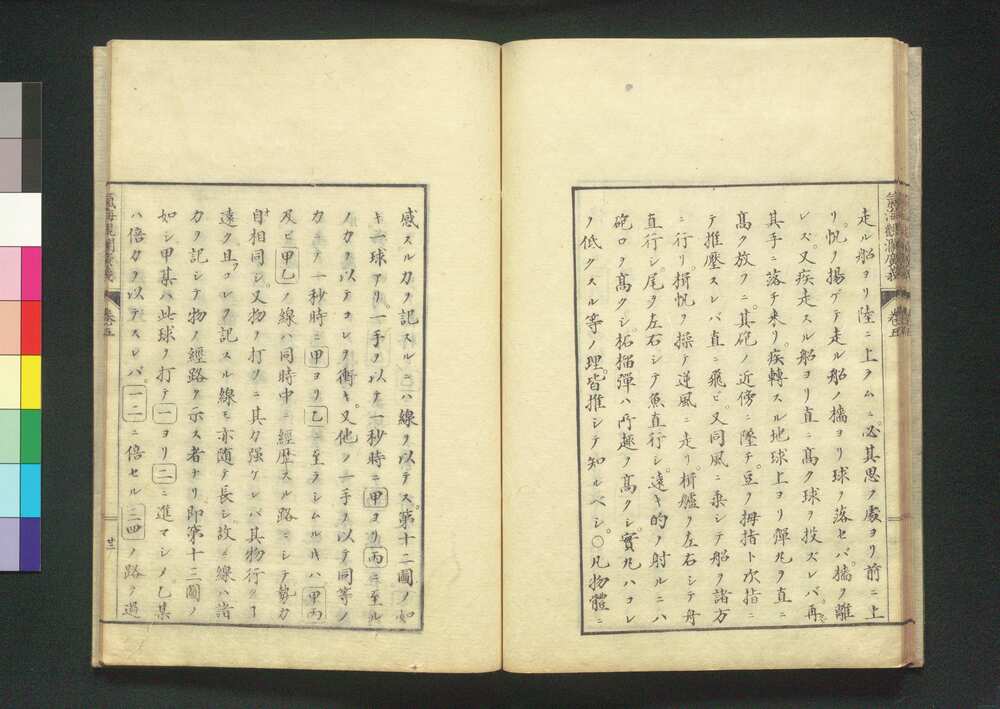 走ル船ヨリ陸ニ上ラムニ必其思フ處ヨリ前ニ上
リ帆ヲ揚ゲテ走ル船ノ檣ヨリ球ヲ落セバ檣ヲ離
レズ又疾走スル船ヨリ直ニ高ク球ヲ投ズレバ再
其手ニ落チ来リ疾轉スル地球上ヨリ彈丸ヲ直ニ
高ク放ツニ其砲ノ近傍ニ墜チ豆ヲ拇指ト次指ニ
テ推壓スレバ直ニ飛ビ又同風ニ乗シテ船ヲ諸方
ニ行リ楫帆ヲ操テ逆風ニ走リ楫艫ヲ左右シテ舟
直行シ尾ヲ左右シテ魚直行シ遠キ的ノ射ルニハ
砲口ヲ高クシ柘榴彈ハ所趣ヲ高クシ實丸ハコレ
ノ低クスル等ノ理皆推シテ知ルベシ○凡物體ニ
氣海觀瀾廣義
卷五
感スル力ヲ記スルニハ線ヲ以テス第十二圖ノ如
キ一球アリ一手ヲ以テ一秒時ニ甲ヨリ丙ニ至ル
ノ力ヲ以テコレヲ衝キ又他ノ一手ヲ以テ同等ノ
力ニテ一秒時ニ甲ヨリ乙ニ至ラシムルキハ甲丙
及ビ甲乙ノ線ハ同時中ニ經歴スル路ニシテ勢力
自相同シ又物ヲ打ツニ其力强ケレバ其物行クヿ
遠ク且コレヲ記スル線モ亦随テ長シ故ニ線ハ諸
力ヲ記シテ物ノ經路ヲ示ス者ナリ即第十三圖ノ
如シ甲某ハ此球ヲ打テ一ヨリ二ニ進マシメ乙某
ハ倍力ヲ以テスレバ一二ニ倍セル三四ノ路ヲ過
氣海觀瀾廣義
卷五
廿三